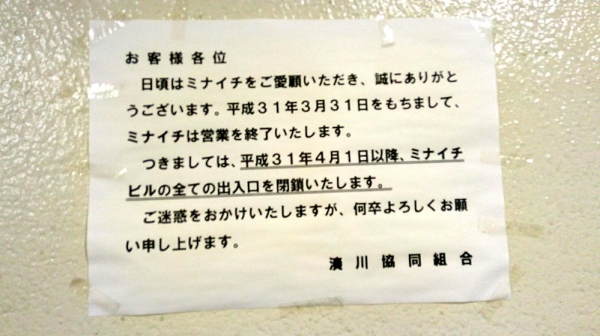 お客様各位
日頃はミナイチをご愛顧いただき、誠にありがと
うございます。平成３１年３月３１日をもちまして、
ミナイチは営業を終了いたします。
つきましては、平成３１年４月１日以降、ミナイチ
ビルの全ての出入口を閉鎖いたします。
ご迷惑をおかけいたしますが、何卒よろしくお願
い申し上げます。
湊川協同組合